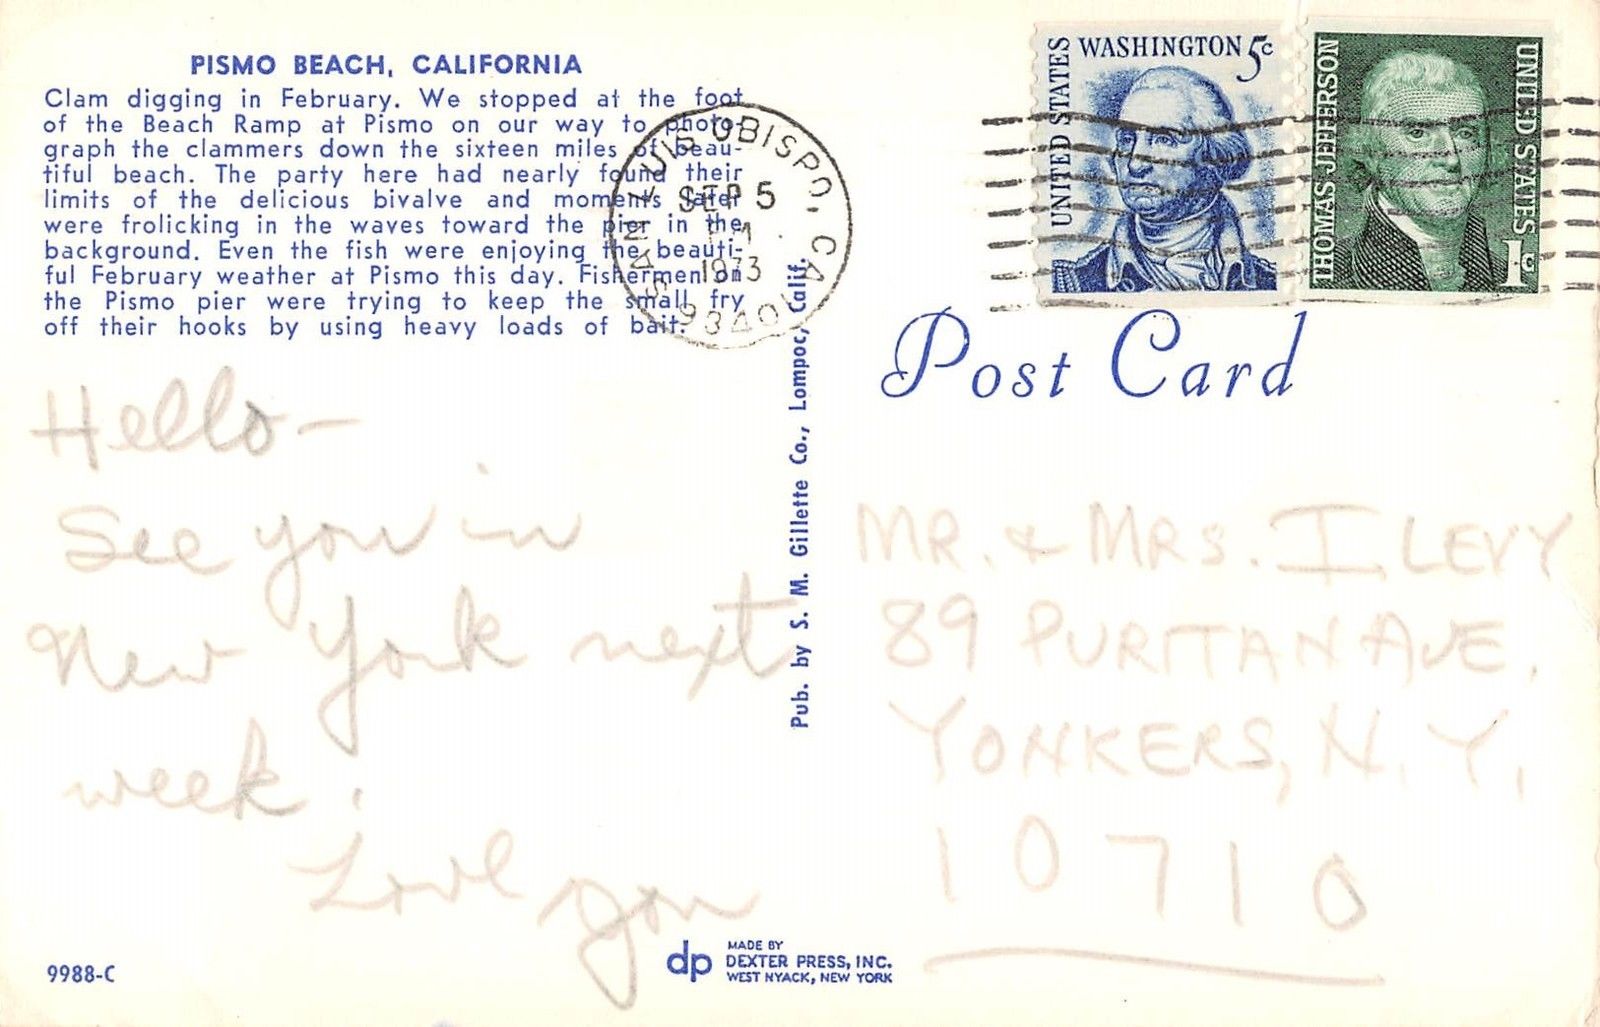 PISMO BEACH, CALIFORNIA
Clam digging in February. We stopped at the foot
of the Beach Ramp at Pismo on our way to photo-
graph the clammers down the sixteen miles of beau-
tiful beach. The party here had nearly found their
limits of the delicious bivalve and moments later
were frolicking in the waves toward the pier in the
background. Even the fish were enjoying the beauti-
ful February weather at Pismo this day. Fishermen on
the Pismo pier were trying to keep the small fry
off their hooks by using heavy loads of bait.
SAN LUIS OBISPO, CA
SEP 5
PM
1973
93401
UNITED STATES
WASHINGTON 5c
THOMAS JEFFERSON
UNITED STATES
1c
Post Card
Hello-
See you in
New York next
week.
Love you
Pub. by S. M. Gillette Co., Lompoc, Calif.
MR. & MRS. I LEVY
89 PURITAN AVE,
YONKERS, N.Y.
10710
9988-C
dp
MADE BY
DEXTER PRESS, INC.
WEST NYACK, NEW YORK